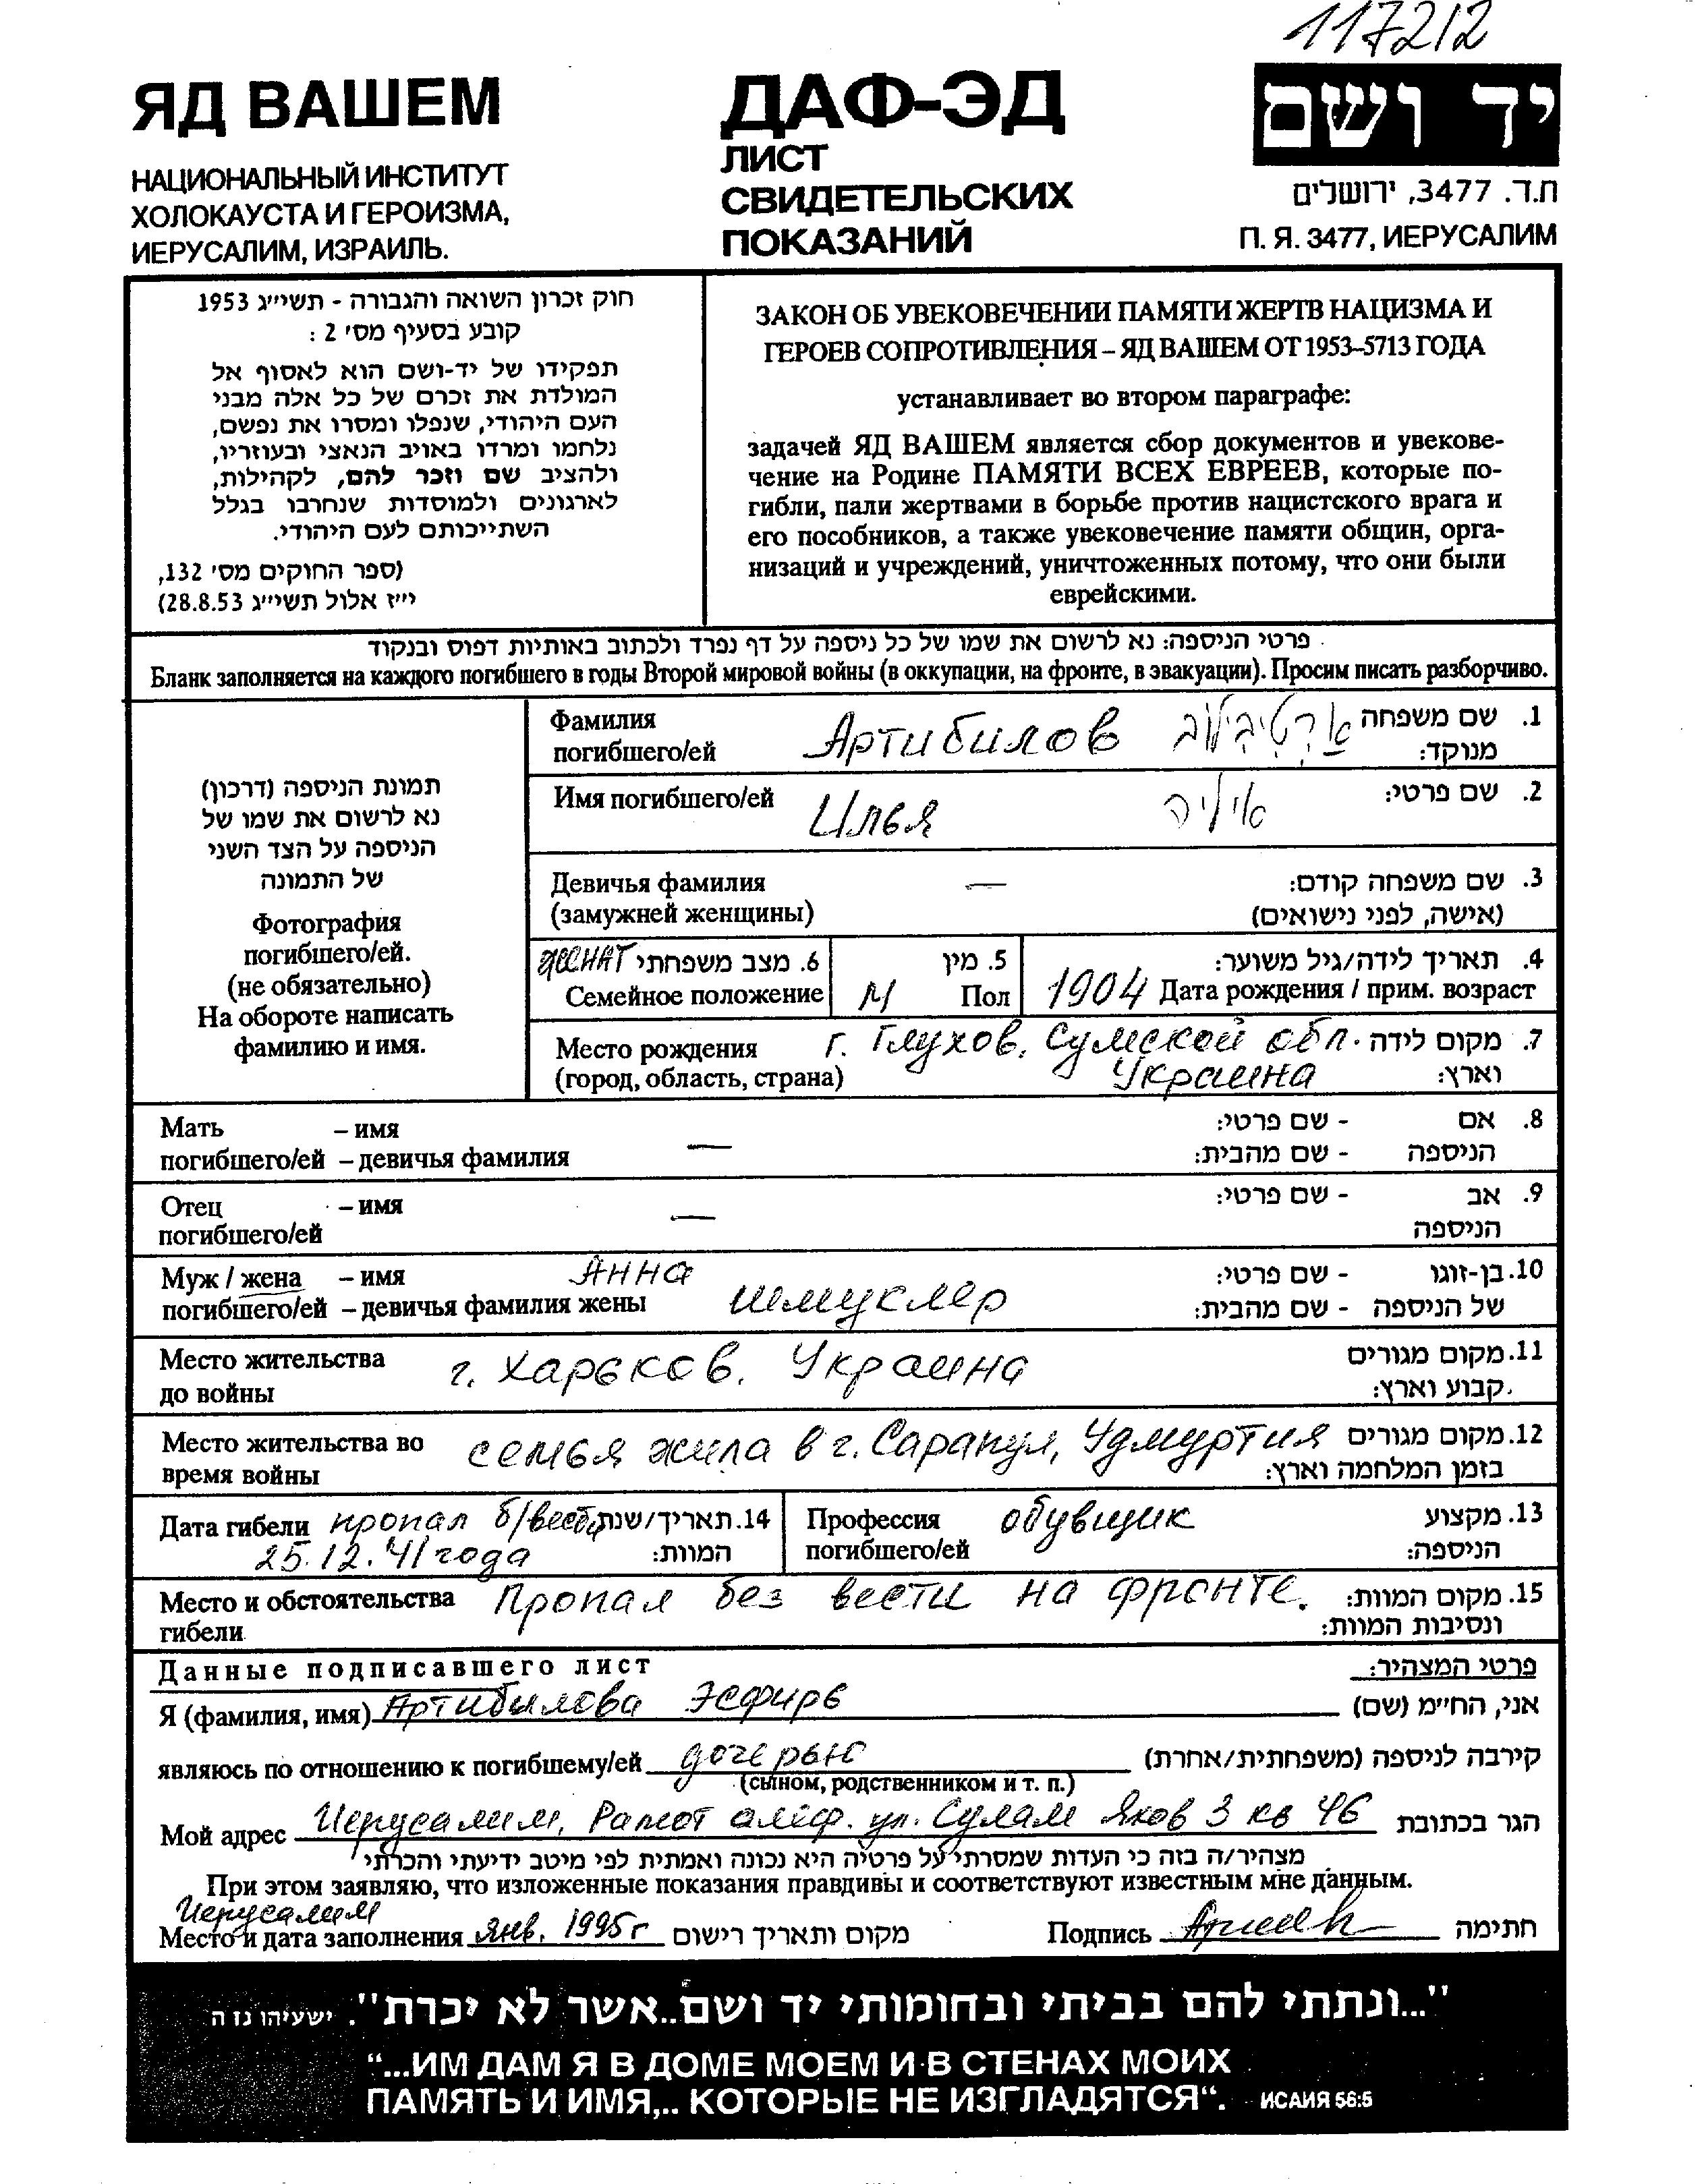 117212
ЯД ВАШЕМ
НАЦИОНАЛЬНЫЙ ИНСТИТУТ
ХОЛОКАУСТА И ГЕРОИЗМА,
ИЕРУСАЛИМ, ИЗРАИЛЬ.
ДАФ-ЭД
ЛИСТ
СВИДЕТЕЛЬСКИХ
ПОКАЗАНИЙ
יד ושם
ת.ד. 3477, ירושלים
П. Я. 3477, ИЕРУСАЛИМ
חוק זכרון השואה והגבורה - תשי״ג 1953
קובע בסעיף מס׳ 2 :
תפקידו של יד-ושם הוא לאסוף אל
המולדת את זכרם של כל אלה מבני
העם היהודי, שנפלו ומסרו את נפשם,
נלחמו ומרדו באויב הנאצי ובעוזריו,
ולהציב שם וזכר להם, לקהילות,
לארגונים ולמוסדות שנחרבו בגלל
השתייכותם לעם היהודי.
(ספר החוקים מס׳ 132,
י״ז אלול תשי״ג 28.8.53)
ЗАКОН ОБ УВЕКОВЕЧЕНИИ ПАМЯТИ ЖЕРТВ НАЦИЗМА И
ГЕРОЕВ СОПРОТИВЛЕНИЯ – ЯД ВАШЕМ ОТ 1953–5713 ГОДА
устанавливает во втором параграфе:
задачей ЯД ВАШЕМ является сбор документов и увекове-
чение на Родине ПАМЯТИ ВСЕХ ЕВРЕЕВ, которые по-
гибли, пали жертвами в борьбе против нацистского врага и
его пособников, а также увековечение памяти общин, орга-
низаций и учреждений, уничтоженных потому, что они были
еврейскими.
פרטי הניספה: נא לרשום את שמו של כל ניספה על דף נפרד ולכתוב באותיות דפוס ובנקוד
Бланк заполняется на каждого погибшего в годы Второй мировой войны (в оккупации, на фронте, в эвакуации). Просим писать разборчиво.
תמונת הניספה (דרכון)
נא לרשום את שמו של
הניספה על הצד השני
של התמונה
Фотография
погибшего/ей.
(не обязательно)
На обороте написать
фамилию и имя.
Фамилия Артибилов ארטיבילוב 1. שם משפחה
погибшего/ей מנוקד:
Имя погибшего/ей Илья איליה 2. שם פרטי:
Девичья фамилия — 3. שם משפחה קודם:
(замужней женщины) (אישה, לפני נישואים)
женат 6. מצב משפחתי 5. מין 4. תאריך לידה/גיל משוער:
Семейное положение М Пол 1904 Дата рождения / прим. возраст
Место рождения г. Глухов, Сумской обл. 7. מקום לידה
(город, область, страна) Украина וארץ:
Мать – имя 8. אם - שם פרטי:
погибшего/ей – девичья фамилия — הניספה - שם מהבית:
Отец – имя — 9. אב - שם פרטי:
погибшего/ей הניספה
Муж / жена – имя Анна 10. בן-זוגו - שם פרטי:
погибшего/ей – девичья фамилия жены Шмуклер של הניספה - שם מהבית:
Место жительства г. Харьков. Украина 11. מקום מגורים
до войны קבוע וארץ:
Место жительства во семья жила в г. Сарапул, Удмуртия 12. מקום מגורים
время войны בזמן המלחמה וארץ:
Дата гибели пропал б/вести 14. תאריך/שנת Профессия обувщик 13. מקצוע
25.12.41 года המוות: погибшего/ей הניספה:
Место и обстоятельства Пропал без вести на фронте. 15. מקום המוות:
гибели ונסיבות המוות:
Данные подписавшего лист פרטי המצהיר:
Я (фамилия, имя) Артибилова Эсфирь אני, הח״מ (שם)
являюсь по отношению к погибшему/ей дочерью קירבה לניספה (משפחתית/אחרת)
(сыном, родственником и т. п.)
Мой адрес Иерусалим, Рамот алеф. ул. Сулам Яков 3 кв 46 הגר בכתובת
מצהיר/ה בזה כי העדות שמסרתי על פרטיה היא נכונה ואמתית לפי מיטב ידיעתי והכרתי
При этом заявляю, что изложенные показания правдивы и соответствуют известным мне данным.
Иерусалим
Место и дата заполнения янв. 1995 г מקום ותאריך רישום Подпись חתימה
"...ונתתי להם בביתי ובחומותי יד ושם..אשר לא יכרת". ישעיהו נז ה
“...ИМ ДАМ Я В ДОМЕ МОЕМ И В СТЕНАХ МОИХ
ПАМЯТЬ И ИМЯ,.. КОТОРЫЕ НЕ ИЗГЛАДЯТСЯ“. ИСАИЯ 56:5